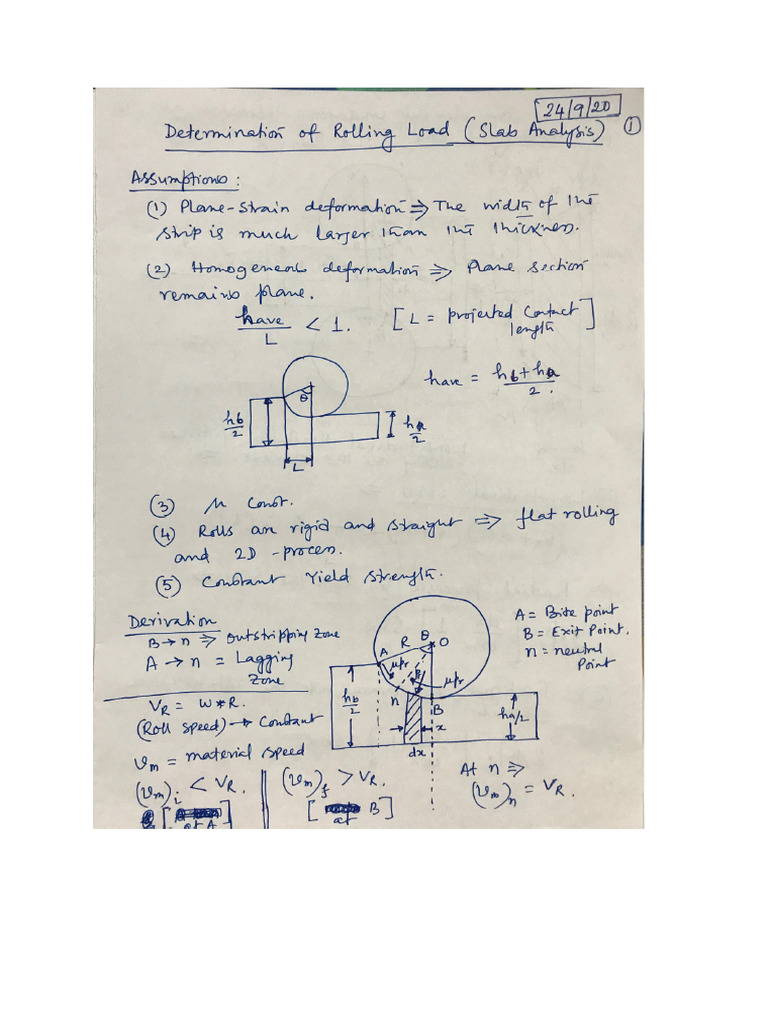 24/9/20
Determination of Rolling Load (Slab Analysis) ①
Assumptions :
(1) Plane-strain deformation ⇒ The width of the
strip is much larger than the thickness.
(2) Homogeneous deformation ⇒ Plane section
remains plane.
have/L < 1. [L = projected contact length]
have = (hb + ha)/2.
θ
hb/2
ha/2
L
(3) μ Const.
(4) Rolls are rigid and straight ⇒ flat rolling
and 2D - process.
(5) Constant Yield Strength.
Derivation
B → n ⇒ outstripping zone
A → n = Lagging
Zone
A = Bite point
B = Exit Point.
n = neutral
Point
A R θ O
μpr
μpr
n
B
hb/2
ha/2
x
dx
VR = W * R.
(Roll speed) → Constant
Vm = material speed
(Vm)i < VR
[at A]
(Vm)f > VR.
[at B]
At n ⇒
(Vm)n = VR.